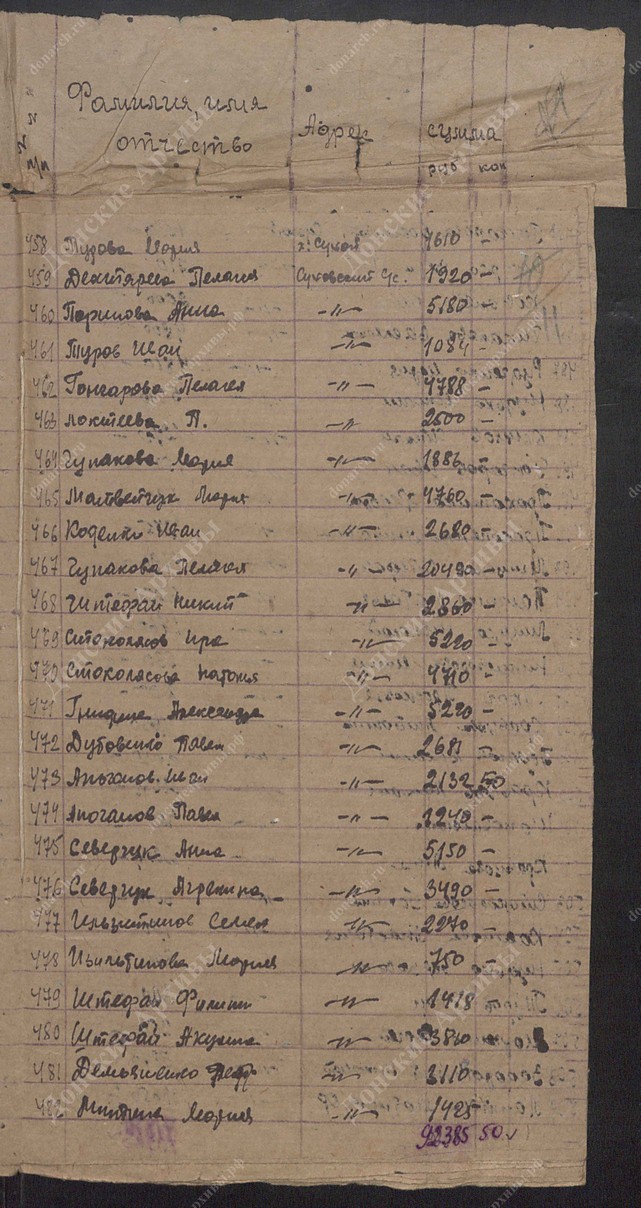 № № п/п Фамилия, имя отчество Адрек сумма руб коп
458 Пурова Мария х. Сухой 7610 –
459 Дехтярева Пелагея Суховский с/с. 1920 –
460 Пермлова Анна –„– 5180 –
461 Туров Иван –„– 1084 –
462 Гончарова Пелагея –„– 4788 –
463 Локтеева П. –„– 2500 –
464 Чупакова Мария –„– 1886 –
465 Матвейчук Мария –„– 4760 –
466 Иван –„– 2680 –
467 Чупакова Пелагея –„– 20490 –
468 Штефан Никит –„– 2860 –
469 Стоколясов Ира –„– 5220 –
470 Стоколясова Наталья –„– 4710 –
471 Александра –„– 5220 –
472 Дубовенко Павел –„– 2681 –
473 Иван –„– 2132 50
474 Павел –„– 1240 –
475 Северчук Анна –„– 5150 –
476 Северчук Агрепина –„– 3490 –
477 Семен –„– 2270 –
478 Мария –„– 750 –
479 Штефан Филипп –„– 1418 –
480 Штефан Акулина –„– 3840 –
481 Демьяненко –„– 2110 –
482 Мария –„– 1425 –
92385 50